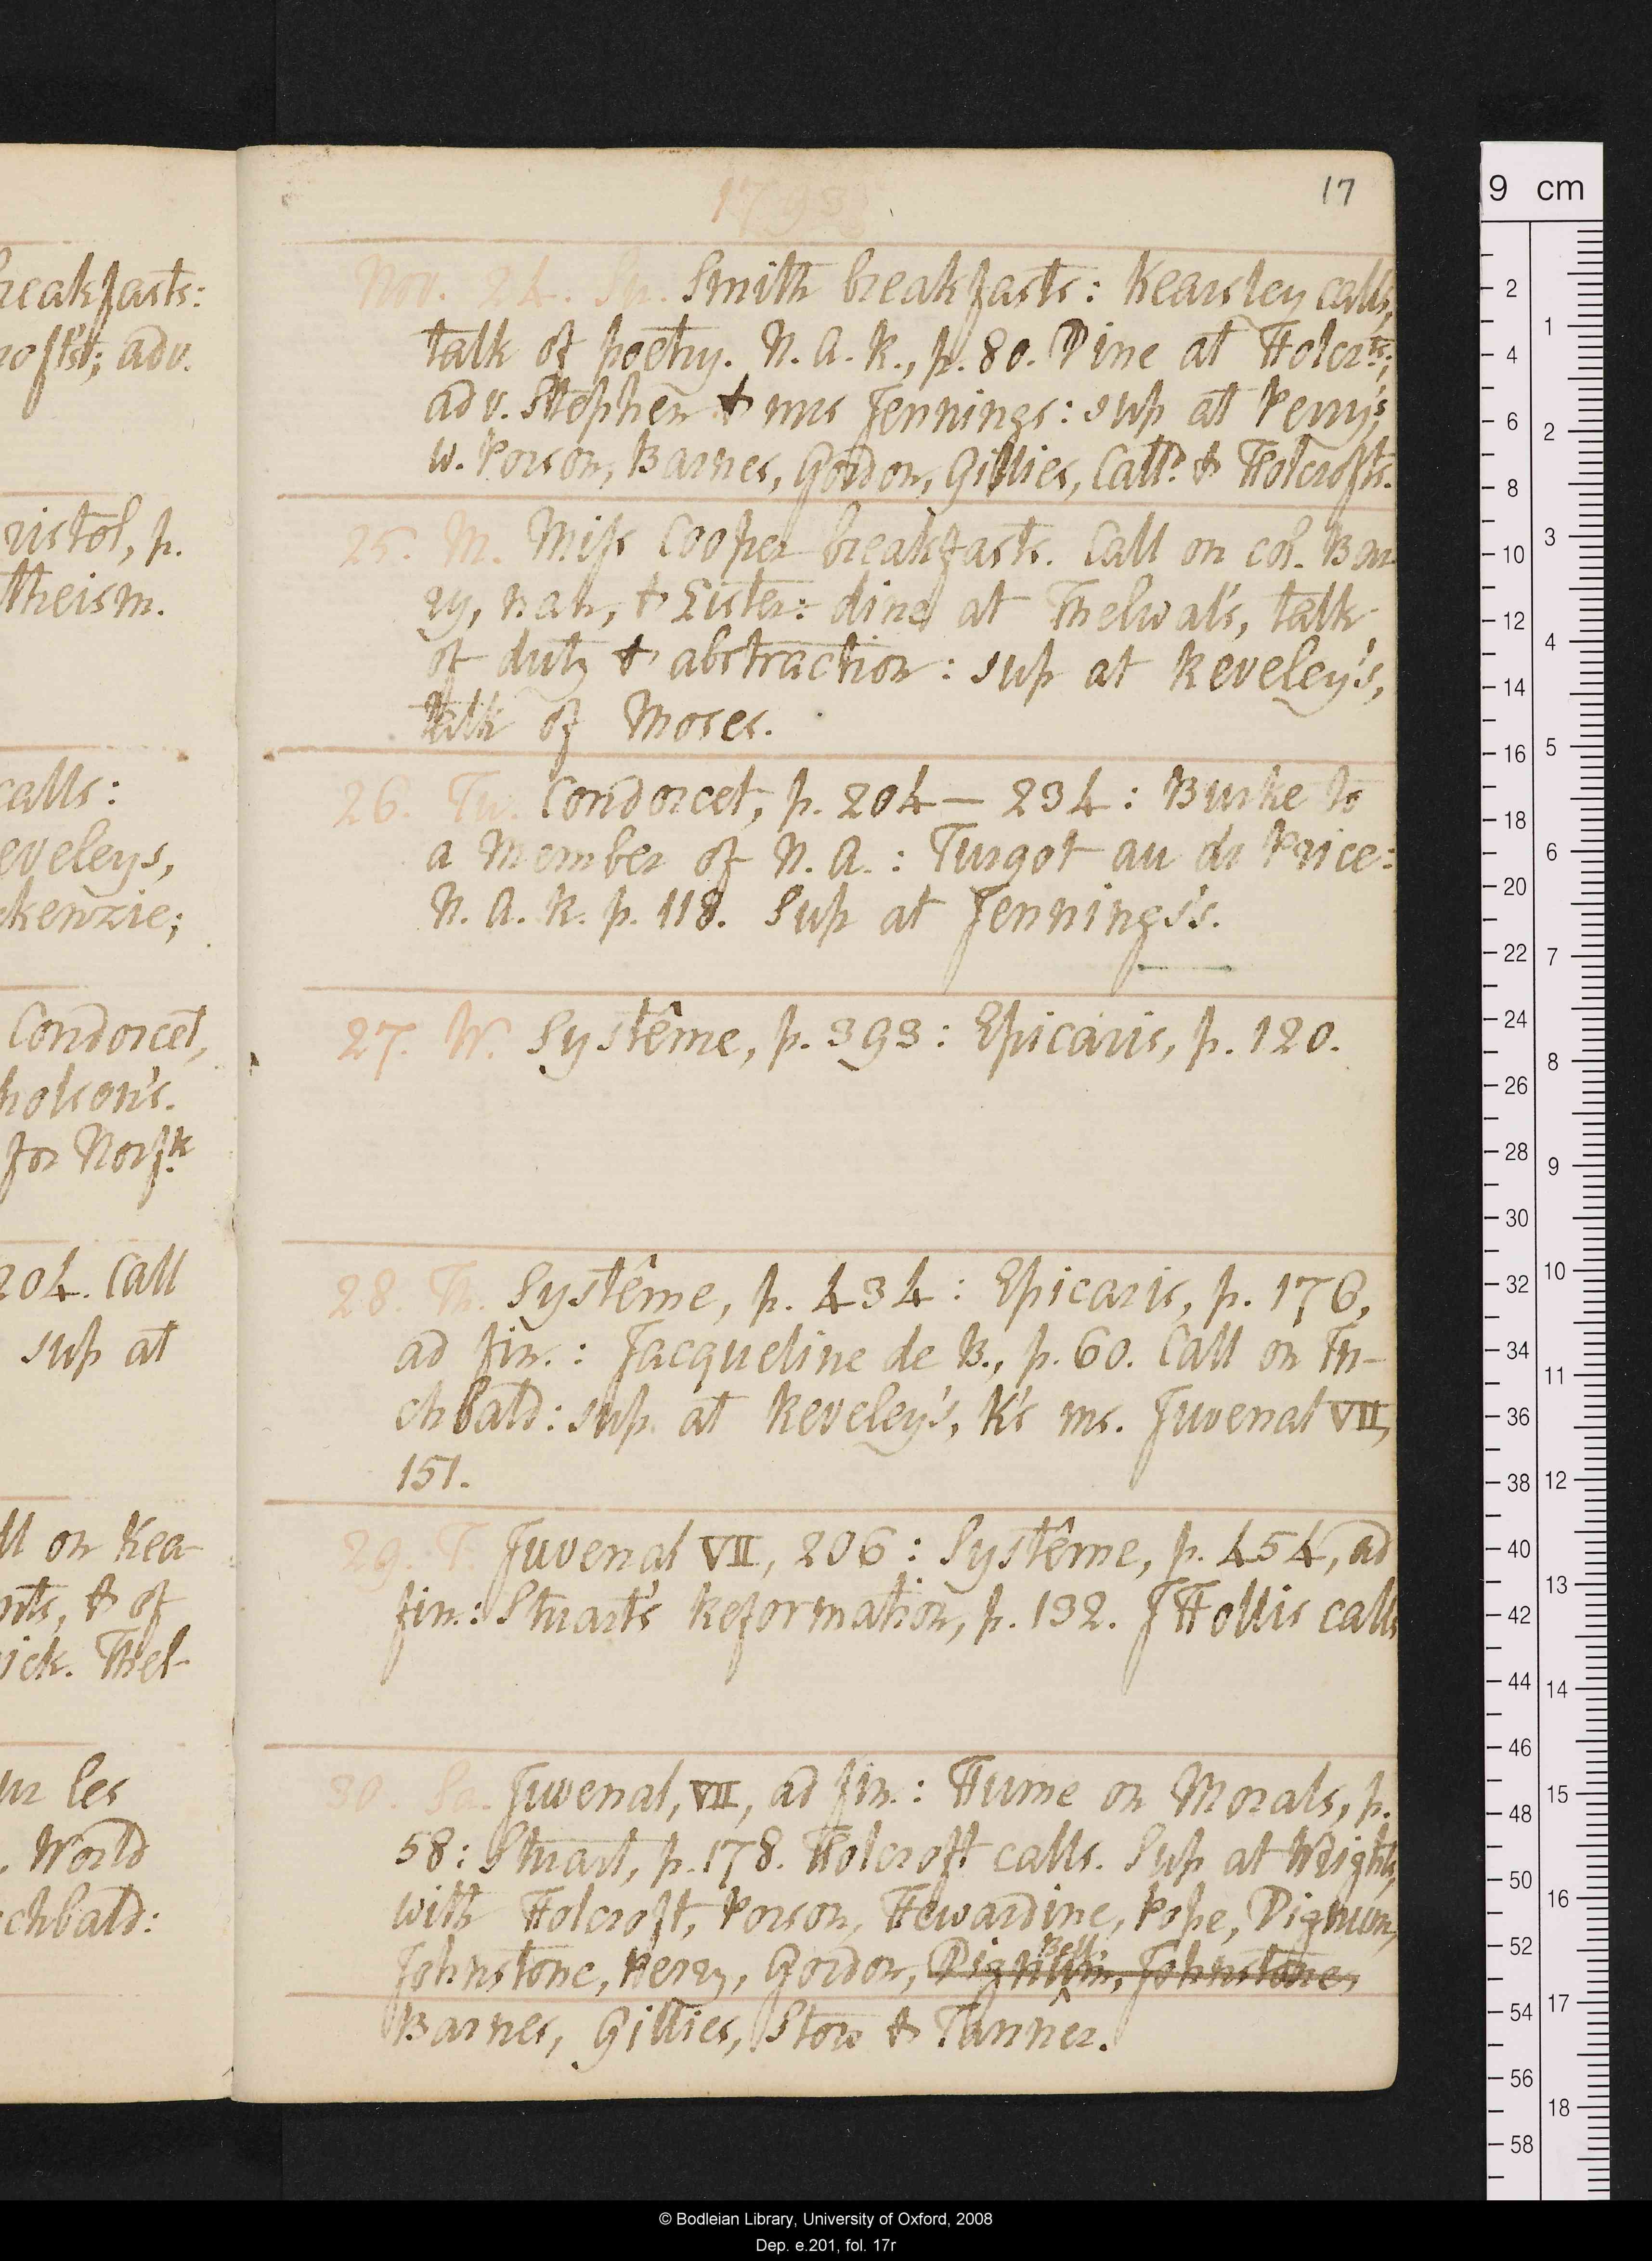 reakfasts:
roft's; adv.
ristol, p.
theism.
calls:
eveleys,
kenzie;
Condorcet,
holson's.
for Norfk
204. Call
sup at
ll on Kea-
nts, & of
ick. Thel-
ur les
World
chbald:
17
1793
Nov. 24. Su. Smith breakfasts: Kearsley calls,
talk of poetry. N. A. R., p. 80. Dine at Holcrts;
adv. Stephen & mrs Jennings: sup at Perry's,
w. Porson, Barnes, Gordon, Gillies, Calld. & Holcrofts.
25. M. Miss Cooper breakfasts. Call on col. Bar
ry, nah, & Sister: dine at Thelwal's, talk
of duty & abstraction: sup at Reveley's,
talk of Moses.
26. Tu. Condorcet, p. 204—234: Burke to
a Member of N. A.: Turgot au dr Price:
N. A. R. p. 118. Sup at Jennings's.
27. W. Systême, p. 393: Epicaris, p. 120.
28. Th. Systême, p. 434: Epicaris, p. 176,
ad fin.: Jacqueline de B., p. 60. Call on In-
chbald: sup at Reveley's, R's ms. Juvenal VII,
151.
29. F. Juvenal VII, 206: Systême, p. 454, ad
fin.: Stuart's Reformation, p. 132. J Hollis calls
30. Sa. Juvenal, VII, ad fin.: Hume on Morals, p.
58: Stuart, p. 178. Holcroft calls. Sup at Wright's,
with Holcroft, Porson, Hewardine, Pope, Dignum,
Bell
Johnstone, Merry, Gordon, Dignum, Johnstone,
Barnes, Gillies, Stow & Tanner.
9 cm
2
4
6
8
10
12
14
16
18
20
22
24
26
28
30
32
34
36
38
40
42
44
46
48
50
52
54
56
58
1
2
3
4
5
6
7
8
9
10
11
12
13
14
15
16
17
18
© Bodleian Library, University of Oxford, 2008
Dep. e.201, fol. 17r